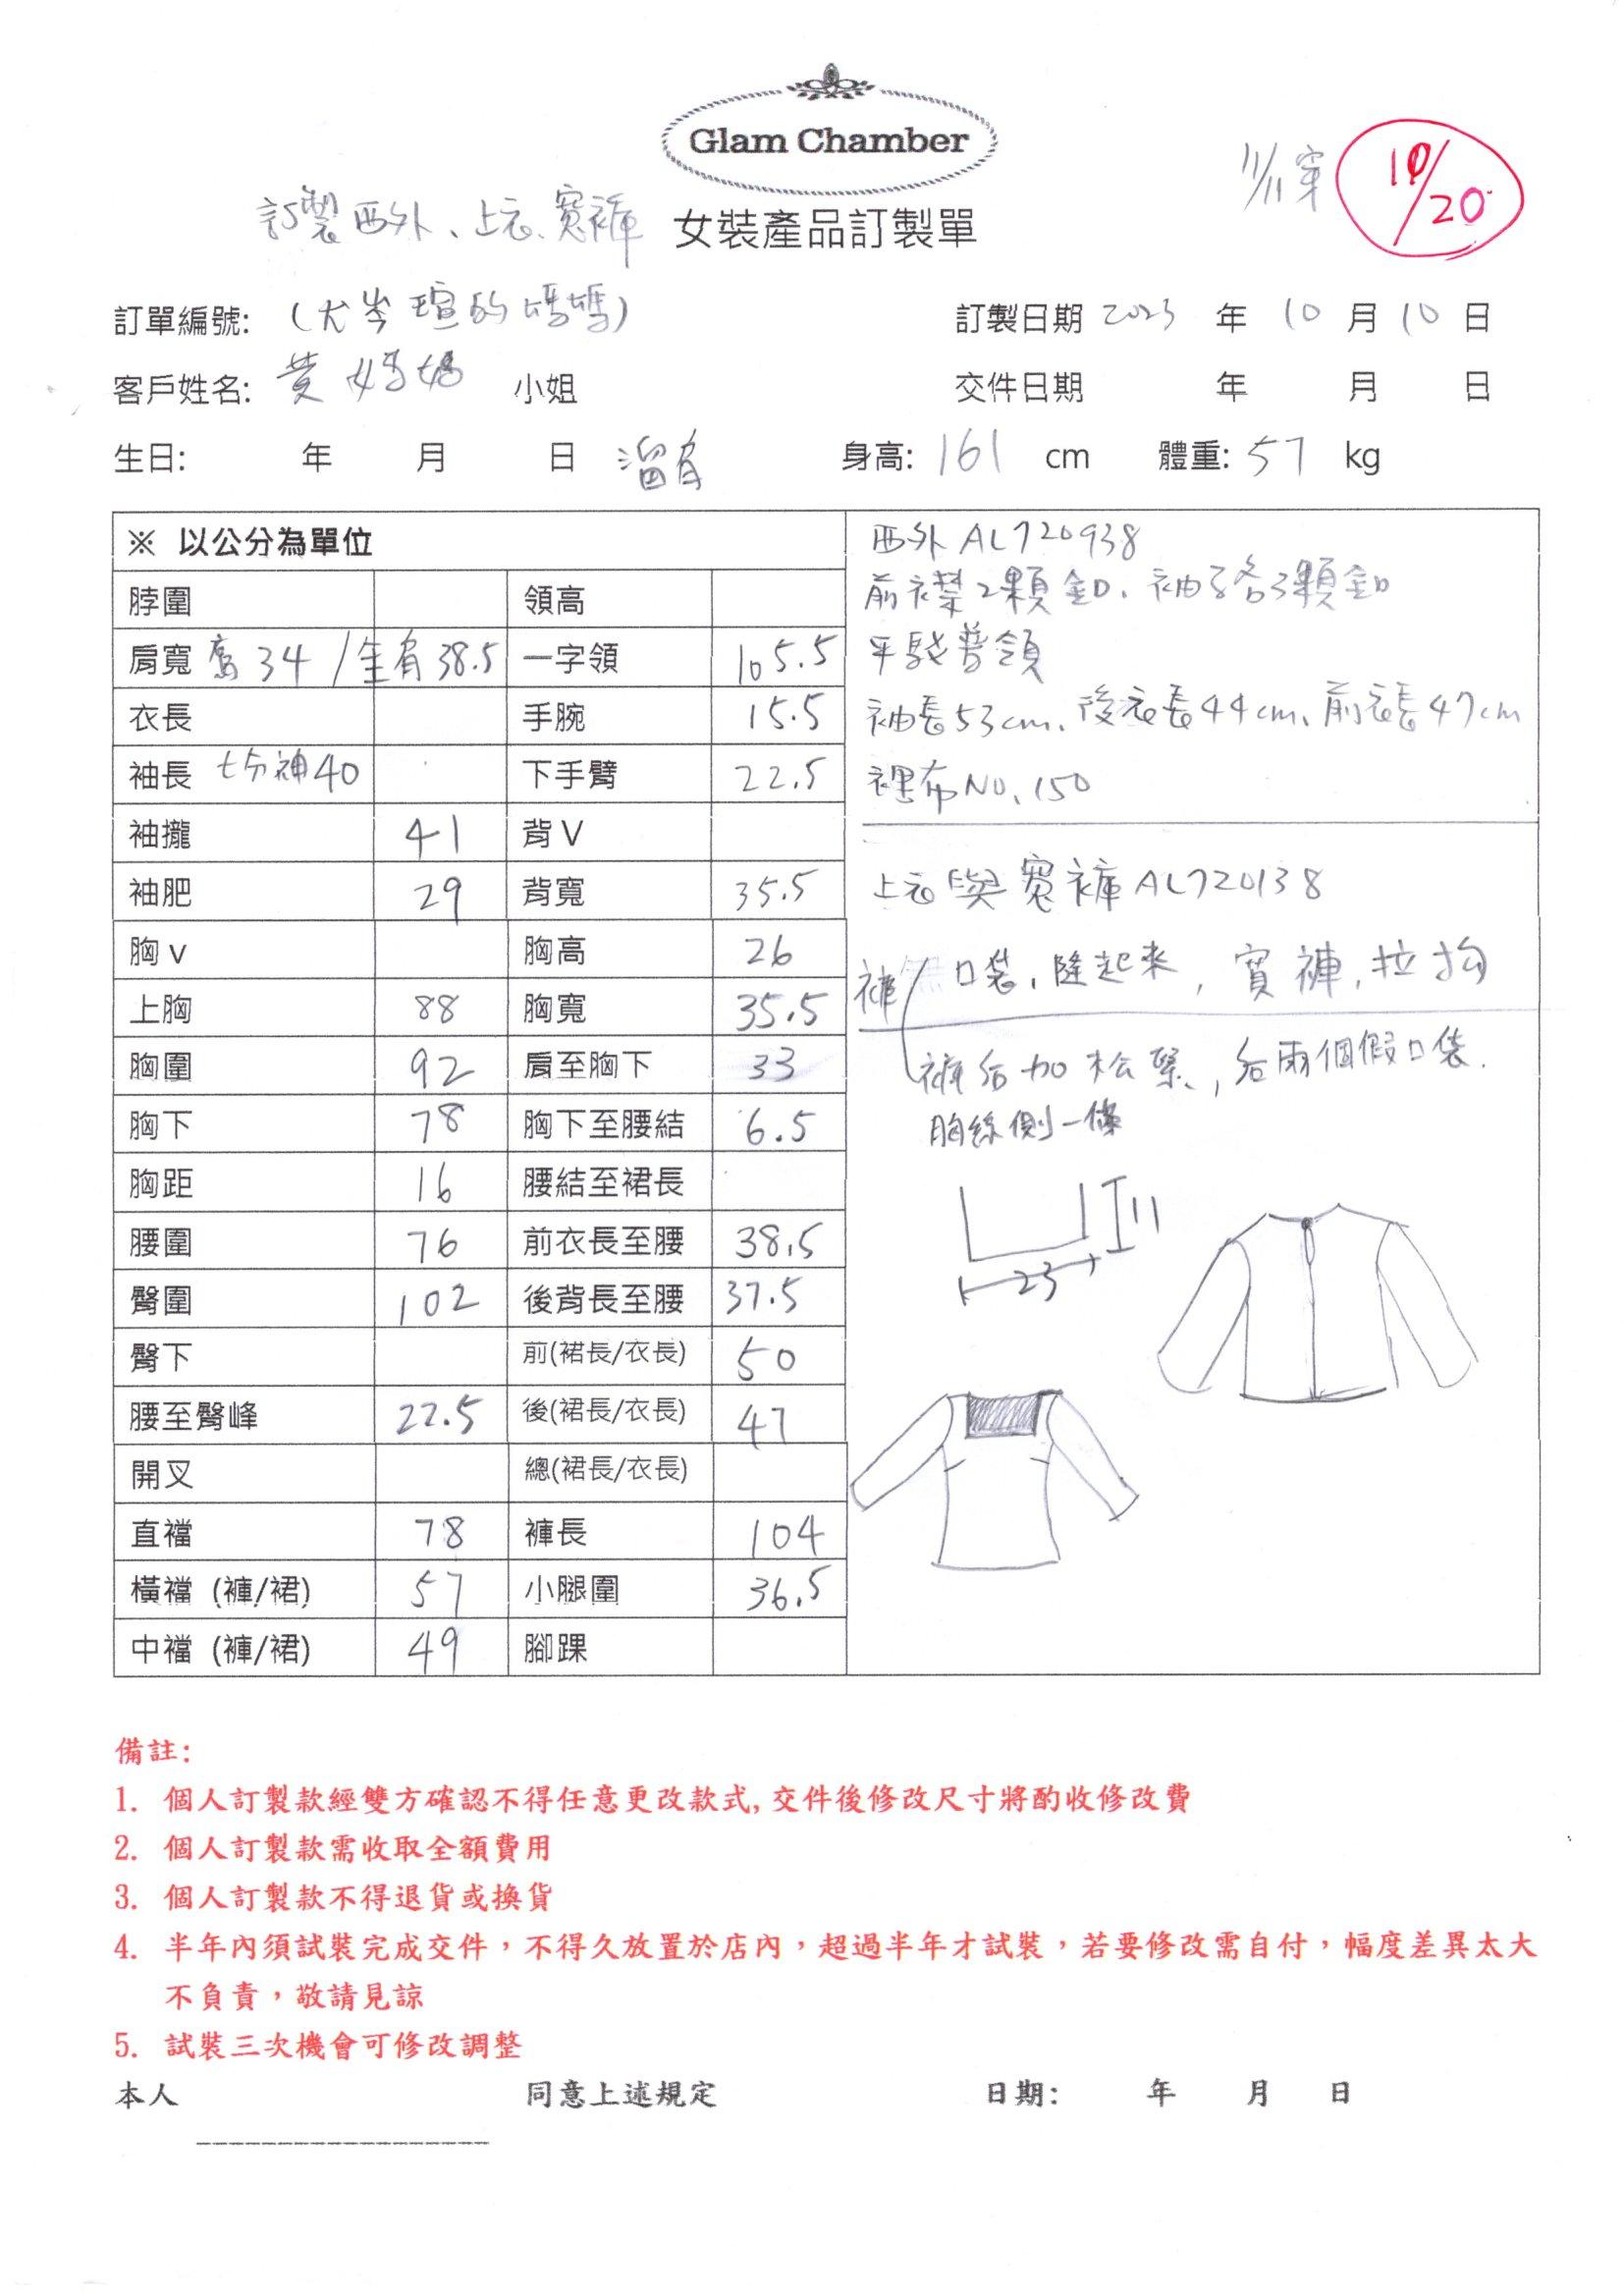 Glam Chamber
11/11穿
10/20
訂製西外、上衣、寬褲
女裝產品訂製單
訂單編號: (尤岑瑄的媽媽) 訂製日期 2023 年 10 月 10 日
客戶姓名: 黃媽媽 小姐 交件日期 年 月 日
生日: 年 月 日 溜肩 身高: 161 cm 體重: 57 kg
※ 以公分為單位
脖圍 領高
肩寬 窩34/全肩38.5 一字領 105.5
衣長 手腕 15.5
袖長 七分袖40 下手臂 22.5
袖攏 41 背V
袖肥 29 背寬 35.5
胸v 胸高 26
上胸 88 胸寬 35.5
胸圍 92 肩至胸下 33
胸下 78 胸下至腰結 6.5
胸距 16 腰結至裙長
腰圍 76 前衣長至腰 38.5
臀圍 102 後背長至腰 37.5
臀下 前(裙長/衣長) 50
腰至臀峰 22.5 後(裙長/衣長) 47
開叉 總(裙長/衣長)
直襠 78 褲長 104
橫襠 (褲/裙) 57 小腿圍 36.5
中襠 (褲/裙) 49 腳踝
西外AL720938
前襟2顆釦、袖子各3顆釦
平駁普領
袖長53cm、後衣長44cm、前衣長47cm
裡布NO、150
上衣與寬褲AL720138
褲 口袋,隆起來, 寬褲,拉拘
褲后加松緊,后兩個假口袋.
胸絲側一條
11
23
備註:
1. 個人訂製款經雙方確認不得任意更改款式,交件後修改尺寸將酌收修改費
2. 個人訂製款需收取全額費用
3. 個人訂製款不得退貨或換貨
4. 半年內須試裝完成交件，不得久放置於店內，超過半年才試裝，若要修改需自付，幅度差異太大
不負責，敬請見諒
5. 試裝三次機會可修改調整
本人 同意上述規定 日期: 年 月 日